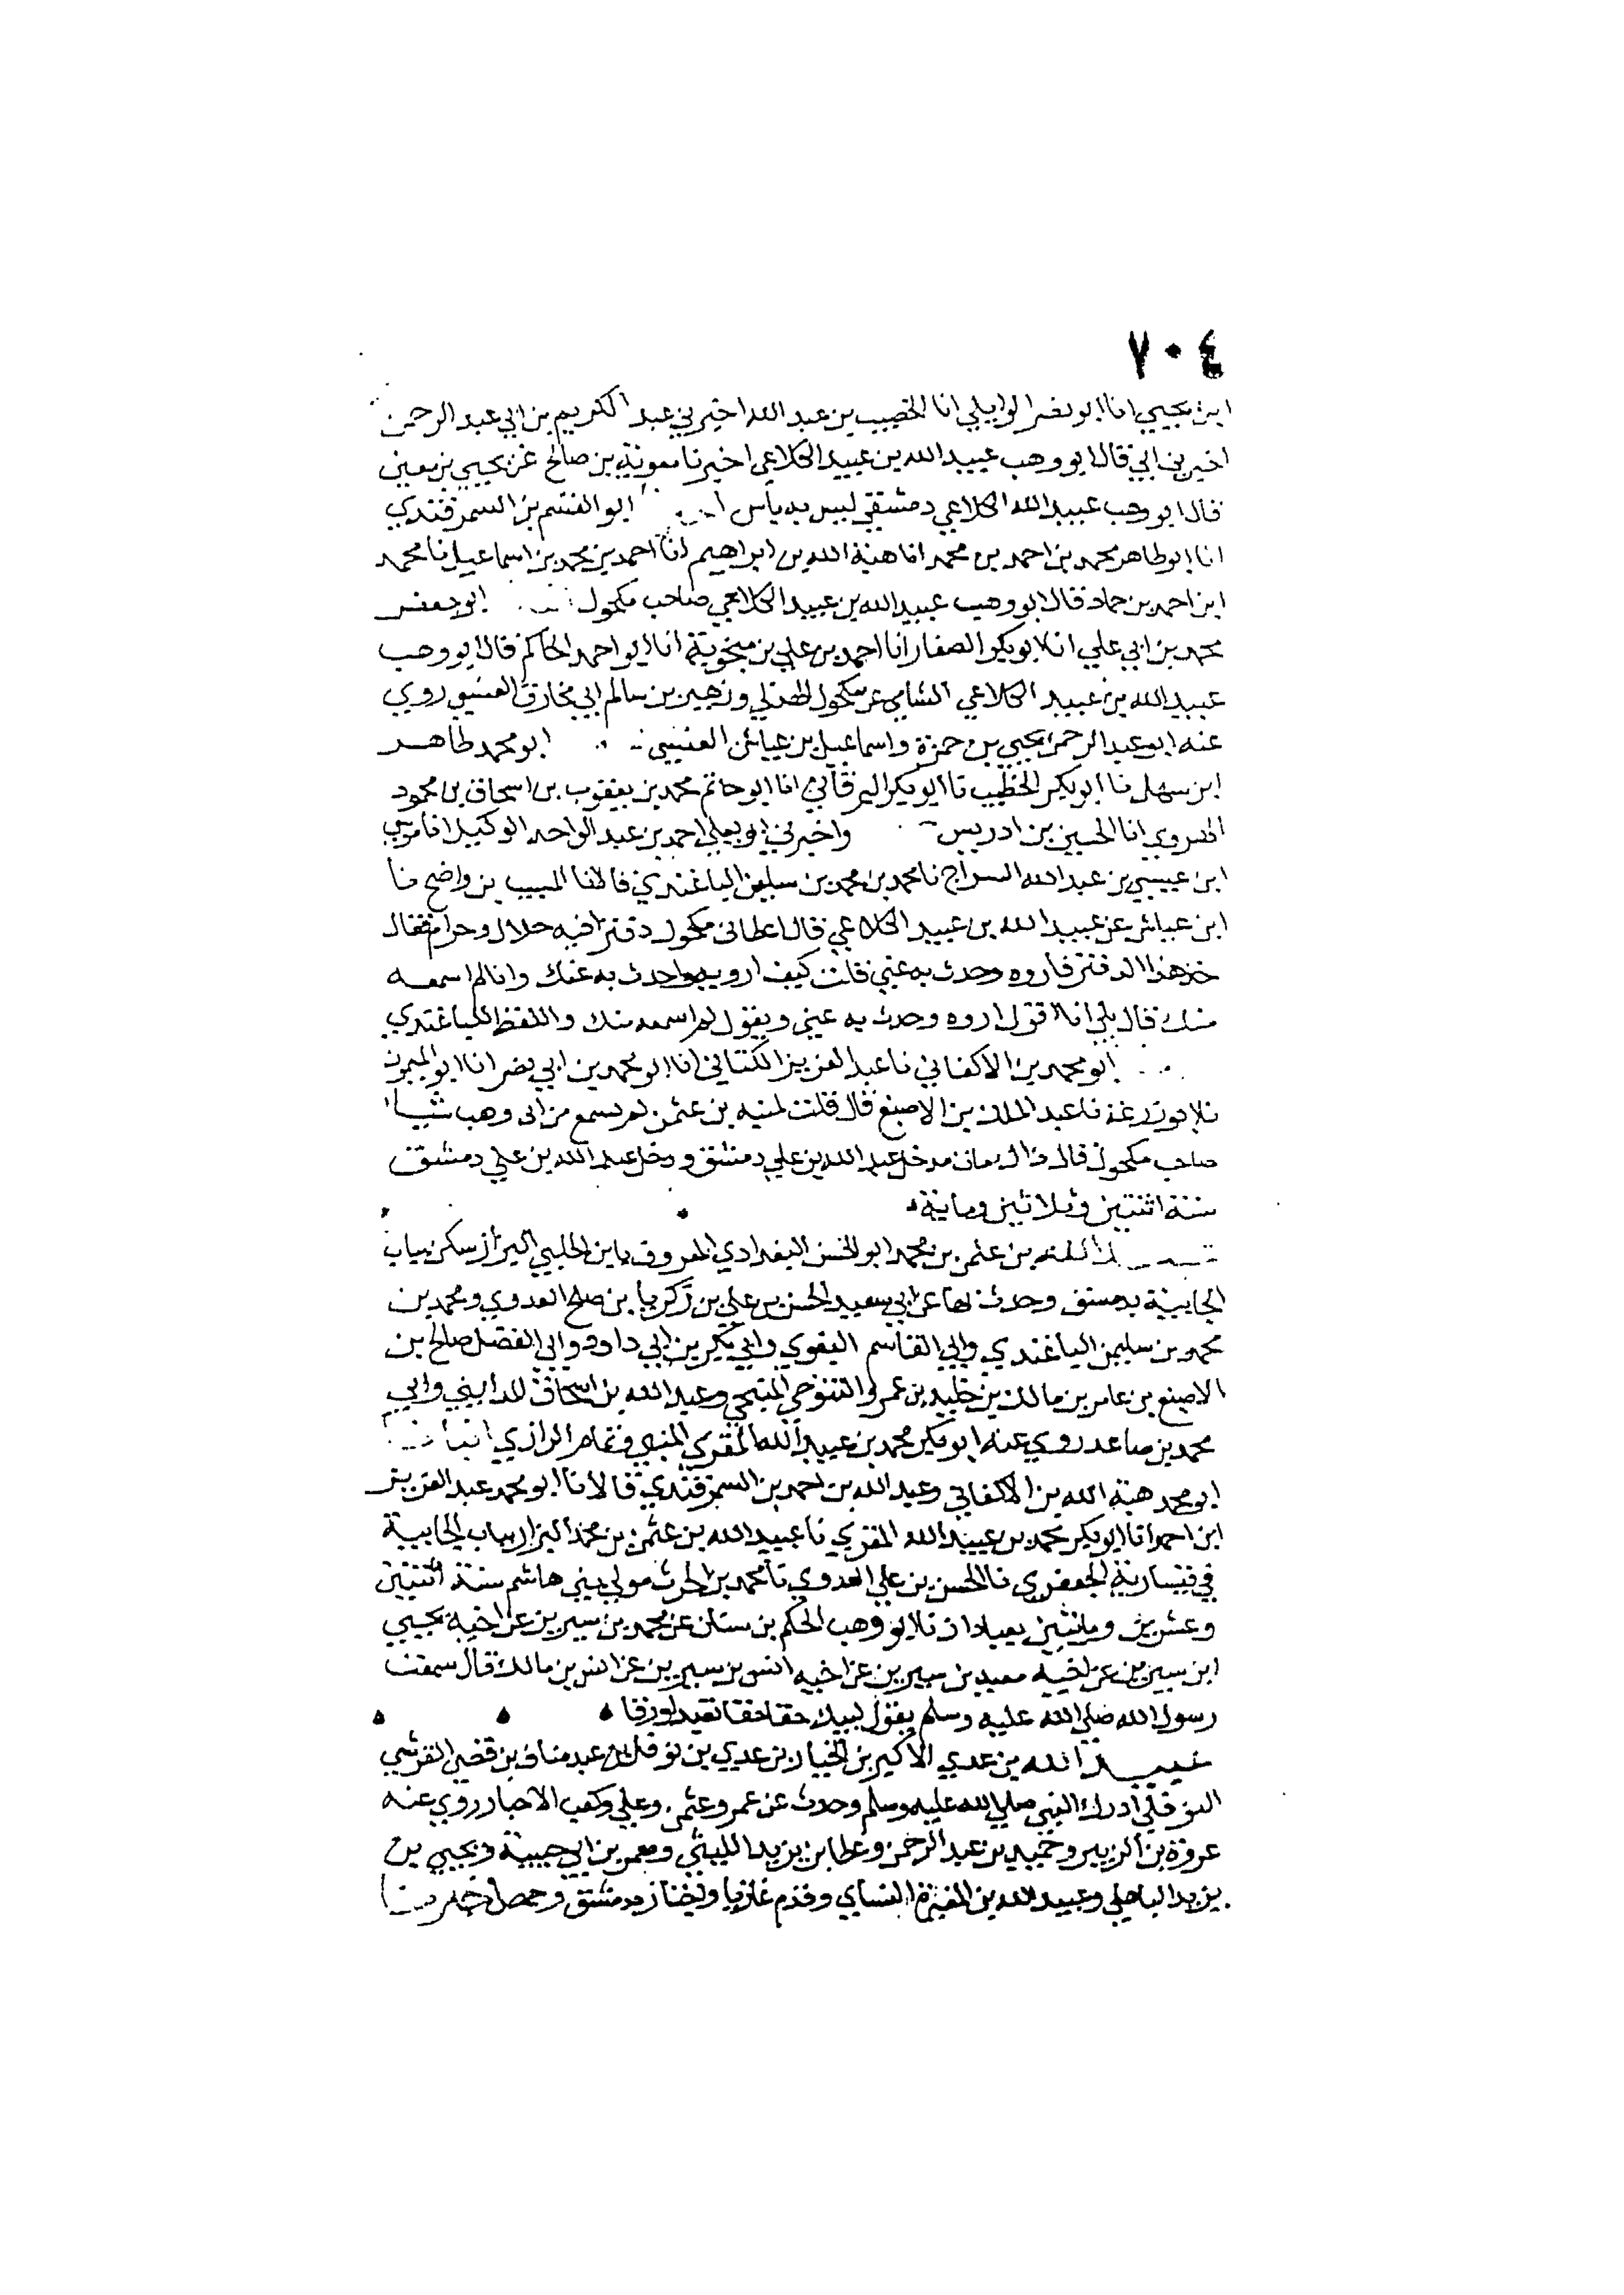 ٧٠٤
ابن يحيي انا ابو نصر الوايلي انا الخصيب بن عبد الله اخبرني عبد الكريم بن ابي عبد الرحمن
اخبرني ابي قال ابو وهب عبيد الله بن عبيد الكلاعي اخبرنا معوية بن صالح عن يحيي بن معين
قال ابو وهب عبيد الله الكلاعي دمشقي ليس به باس ابو القسم بن السمرقندي
انا ابو طاهر محمد بن احمد بن محمد انا هبة الله بن ابراهيم انا احمد بن محمد بن اسماعيل نا محمد
ابن احمد بن حماد قال ابو وهب عبيد الله بن عبيد الكلاعي صاحب مكحول ابو جعفر
محمد بن ابي علي انا ابو بكر الصفار انا احمد بن علي بن منجوية انا ابو احمد الحاكم قال ابو وهب
عبيد الله بن عبيد الكلاعي الشامي عن مكحول الهذلي وزهير بن سالم ابي مخارق العنسي روي
عنه ابو عبد الرحمن يحيي بن حمزة واسماعيل بن عياش العنسي ابو محمد طاهر
ابن سهل نا ابو بكر الخطيب نا ابو بكر البرقاني انا ابو حاتم محمد بن يعقوب بن اسحاق بن محمود
الهروي انا الحسين بن ادريس واخبرني ابو يعلي احمد بن عبد الواحد الوكيل انا موسي
ابن عيسي بن عبد الله السراج نا محمد بن محمد بن سليمن الباغندي قالا نا المسيب بن واضح نا
ابن عياش عن عبيد الله بن عبيد الكلاعي قال اعطاني مكحول دفترا فيه حلال وحرام فقال
خذ هذا الدفتر فاروه وحدث به عني قلت كيف ارويه واحدث به عنك وانا لم اسمعه
منك قال بلي انا اقول اروه وحدث به عني ويقول لم اسمعه منك واللفظ للباغندي
ابو محمد بن الاكفاني نا عبد العزيز الكتاني انا ابو محمد بن ابي نصر انا ابو الميمون
نا ابو زرعة نا عبد الملك بن الاصبغ قال قلت لمنبه بن عثمن لم تسمع من ابي وهب شيا
صاحب مكحول قال ذاك مات مدخل عبد الله بن علي دمشق ودخل عبد الله بن علي دمشق
سنة اثنتين وثلاثين وماية
عبيد الله بن عثمن بن محمد ابو الحسن البغدادي المعروف بابن الحلبي البزاز سكن بباب
الجابية بدمشق وحدث بها عن ابي سعيد الحسن بن علي بن زكريا بن صلح العدوي ومحمد بن
محمد بن سليمن الباغندي وابي القاسم البغوي وابي بكر بن ابي داود وابي الفضل صالح بن
الاصبغ بن عامر بن مالك بن خليد بن عمرو التنوخي المنبجي وعبد الله بن اسحاق المدايني وابي
محمد بن صاعد روي عنه ابو بكر محمد بن عبيد الله المقري المنيني وتمام الرازي انبا
ابو محمد هبة الله بن الاكفاني وعبد الله بن احمد بن السمرقندي قالا نا ابو محمد عبد العزيز
ابن احمد انا ابو بكر محمد بن عبيد الله المقري نا عبيد الله بن عثمن بن محمد البزاز بباب الجابية
في قيسارية الجعفري نا الحسن بن علي العدوي نا محمد بن الحرث مولي بني هاشم سنة اثنتين
وعشرين وماتتين بعبادان نا ابو وهب الحكم بن سنان عن محمد بن سيرين عن اخيه يحيي
ابن سيرين عن اخيه معبد بن سيرين عن اخيه انس بن سيرين عن انس بن مالك قال سمعت
رسول الله صلي الله عليه وسلم يقول لبيك حقا حقا تعبدا ورقا
عبيد الله بن عدي الاكبر بن الخيار بن عدي بن نوفل بن عبد مناف بن قصي القرشي
النوفلي ادرك النبي صلي الله عليه وسلم وحدث عن عمر وعثمن وعلي وكعب الاحبار روي عنه
عروة بن الزبير وحميد بن عبد الرحمن وعطا بن يزيد الليثي ومعمر بن ابي حبيبة ويحيي بن
يزيد الباهلي وعبيد الله بن المغيرة النساي وقدم غازيا واجتاز بدمشق وحمص